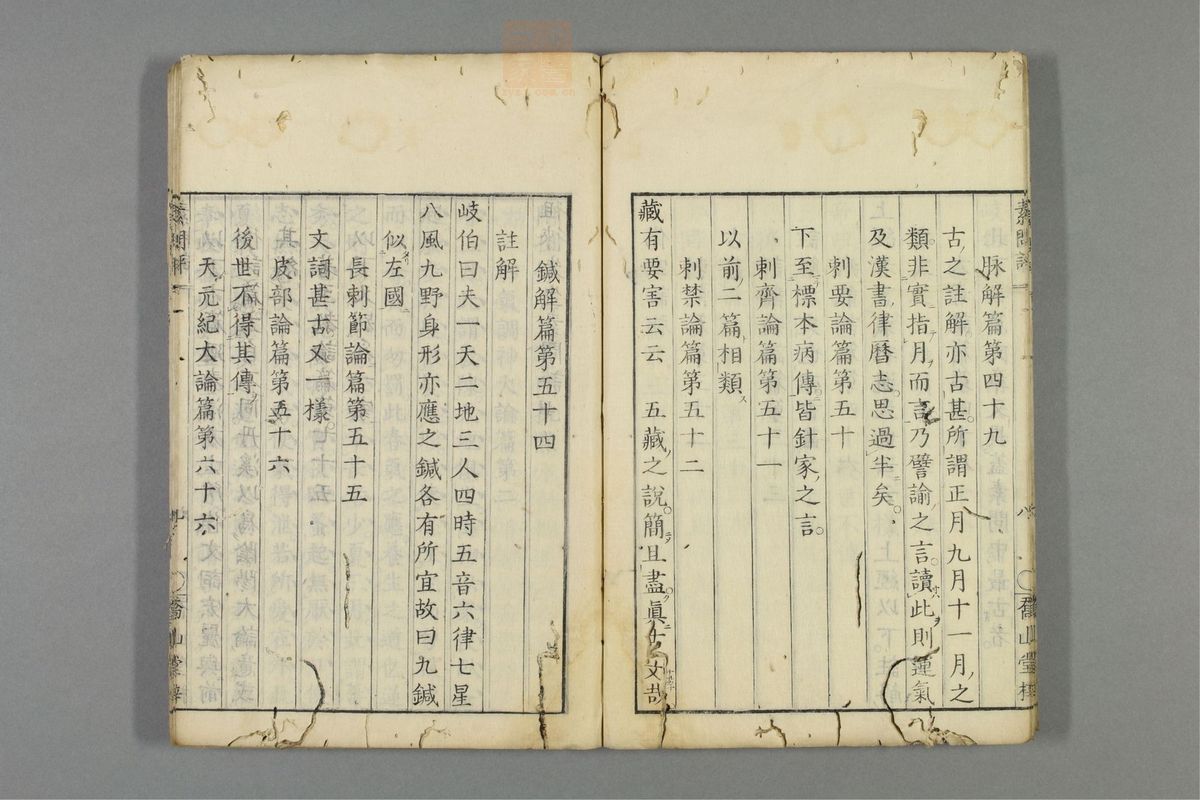 脉解篇第四十九
古之註解亦古甚所謂正月九月十一月之
類非實指月而言乃譬諭之言讀此則運氣
及漢書律曆志思過半矣
刺要論篇第五十
下至標本病傳皆針家之言
刺齊論篇第五十一
以前二篇相類
刺禁論篇第五十二
藏有要害云云　五藏之說簡且盡眞古文哉
鍼解篇第五十四
註解
岐伯曰夫一天二地三人四時五音六律七星
八風九野身形亦應之鍼各有所宜故曰九鍼
似左國
長刺節論篇第五十五
文詞甚古又一樣
皮部論篇第五十六
後世不得其傳
天元紀大論篇第六十六